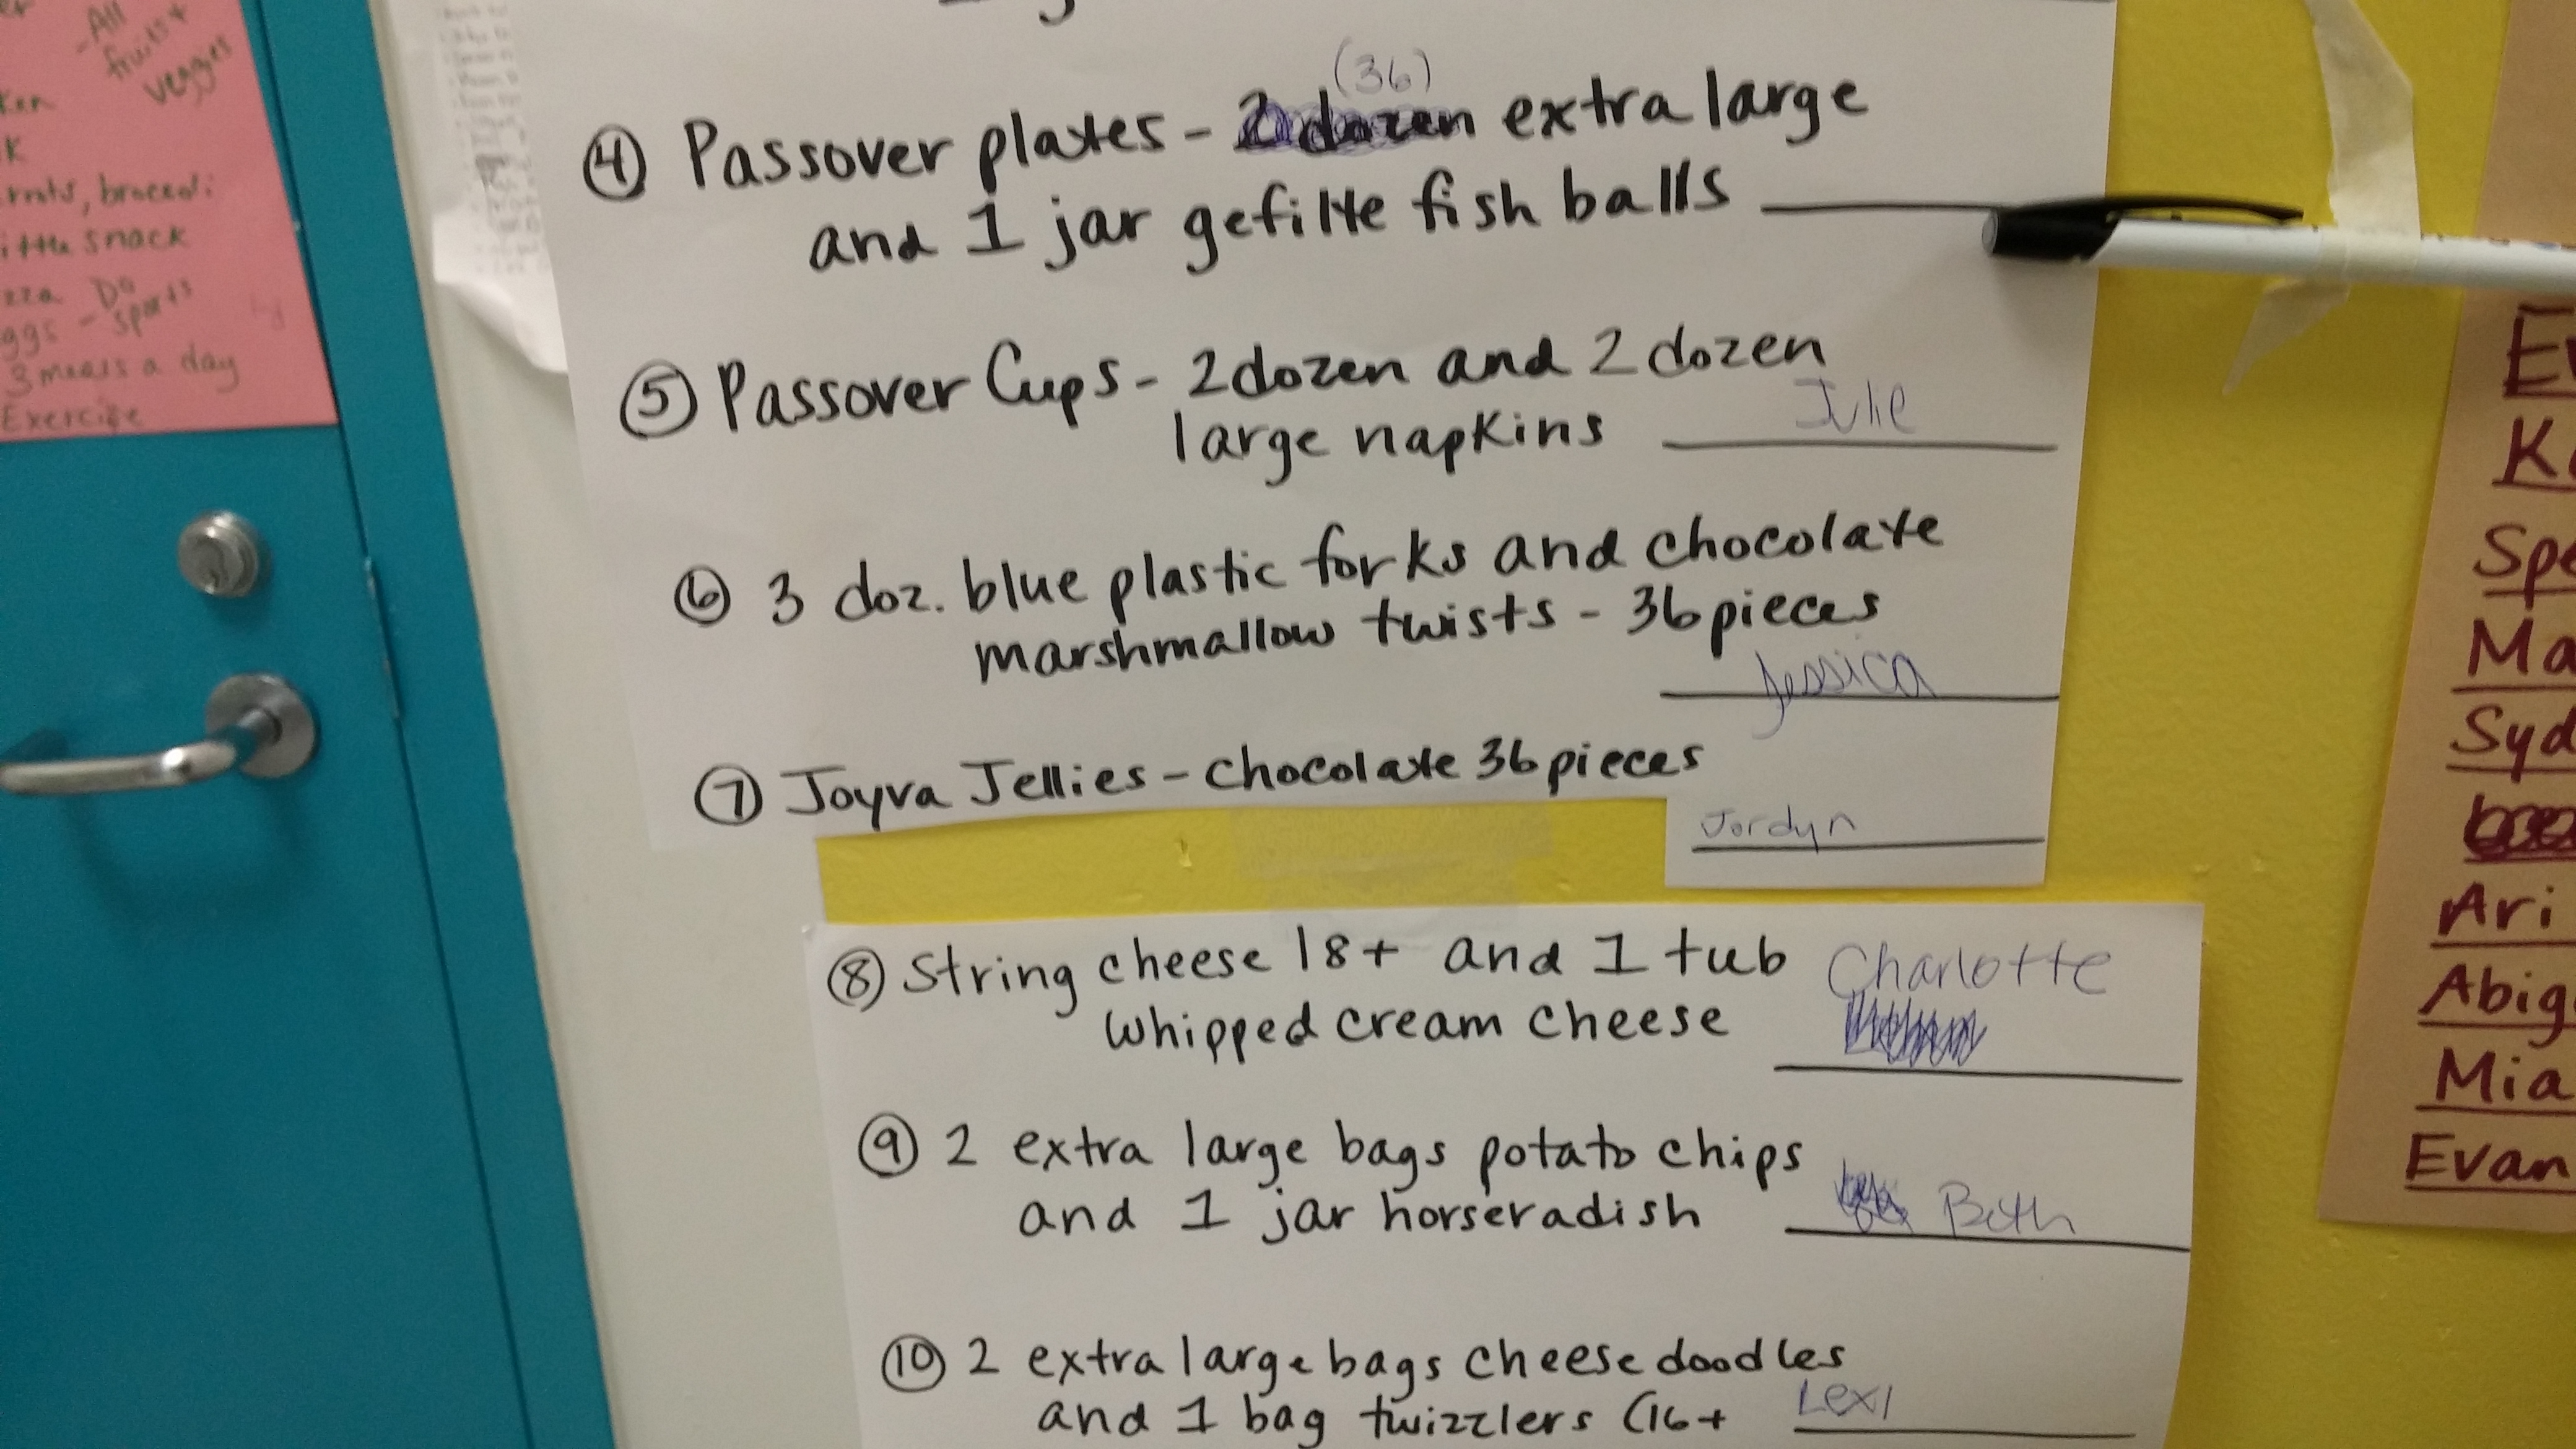 -All
fruits +
veggies
K
broccoli
snack
Do
- sports
3 meals a day
Exercise
(36)
④ Passover plates - 2 dozen extra large
and 1 jar gefilte fish balls
⑤ Passover Cups - 2 dozen and 2 dozen
large napkins Julie
⑥ 3 doz. blue plastic forks and chocolate
marshmallow twists - 36 pieces
Jessica
⑦ Joyva Jellies - chocolate 36 pieces
Jordyn
⑧ String cheese 18+ and 1 tub Charlotte
whipped cream cheese
⑨ 2 extra large bags potato chips
and 1 jar horseradish Beth
⑩ 2 extra large bags cheese doodles
and 1 bag twizzlers (16+ Lexi
Ari
Abig
Mia
Evan